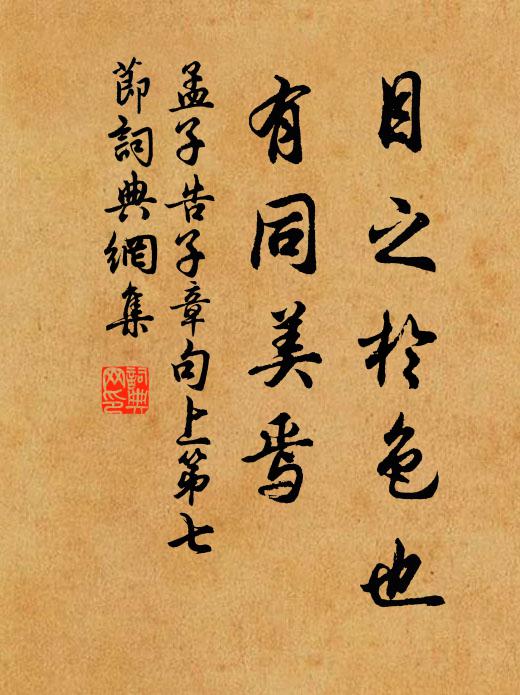 目之於色也
有同美焉
孟子告子章句上第七
節詞典網集
詞典
网印